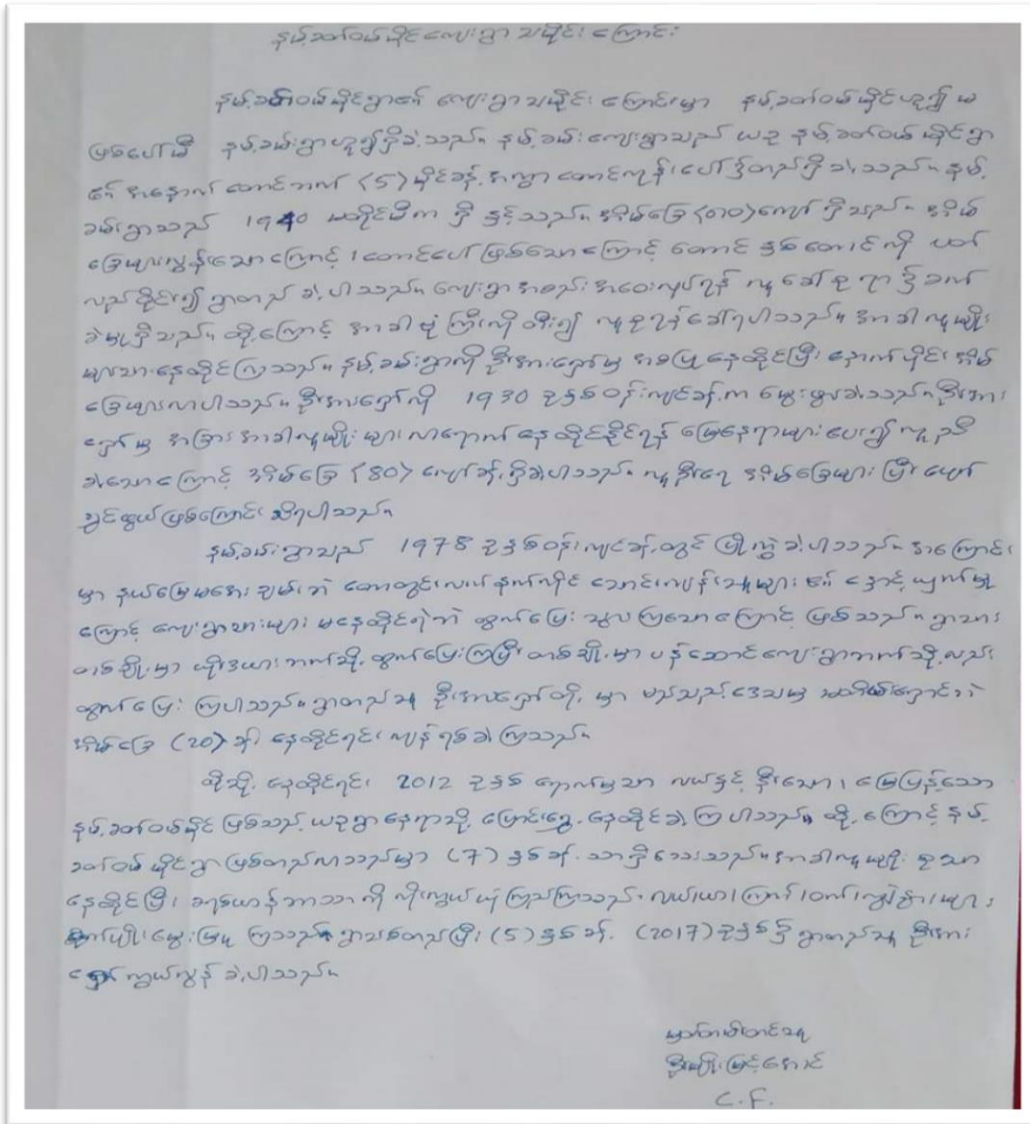 နမ့်ခတ်ဝယ်မိုင်ကျေးရွာ သမိုင်း ကြောင်း
နမ့်ခတ်ဝယ်မိုင်ရွာ၏ ကျေးရွာသမိုင်း ကြောင်းမှာ နမ့်ခတ်ဝယ်မိုင်ဟူ၍ မ
ဖြစ်ပေါ်မီ နမ့်ခမ်းရွာဟူ၍ရှိခဲ့သည်။ နမ့်ခမ်းကျေးရွာသည် ယခု နမ့်ခတ်ဝယ်မိုင်ရွာ
၏ အနောက်တောင်ဘက် (5) မိုင်ခန့်အကွာ တောင်ကုန်းပေါ်၌တည်ရှိခဲ့သည်။ နမ့်
ခမ်းရွာသည် 1940 မတိုင်မီက ရှိနှင့်သည်။ အိမ်ခြေ (၈၀) ကျော် ရှိသည်။ အိမ်
ခြေများလွန်းသောကြောင့်၊ တောင်ပေါ်ဖြစ်သောကြောင့် တောင်နှစ်တောင်ကို ပတ်
လည်ဝိုင်း၍ ရွာတည်ခဲ့ပါသည်။ ကျေးရွာအစည်းအဝေးလုပ်ရန် လူခေါ်စုရာ၌ ခက်
ခဲမှုရှိသည်။ ထို့ကြောင့် အာခါဗုံကြီးကိုတီး၍ လူစုရန်ခေါ်ရပါသည်။ အာခါလူမျိုး
များသာနေထိုင်ကြသည်။ နမ့်ခမ်းရွာကို ဦးအားရှော်မှ အစပြုနေထိုင်ပြီး နောက်ပိုင်း အိမ်
ခြေများလာပါသည်။ ဦးအားရှော်ကို 1930 ခုနှစ်ဝန်းကျင်ခန့်က မွေးဖွားခဲ့သည်။ ဦးအား
ရှော်မှ အခြားအာခါလူမျိုးများ လာရောက်နေထိုင်နိုင်ရန် မြေနေရာများပေး၍ ကူညီ
ခဲ့သောကြောင့် အိမ်ခြေ (80) ကျော်ခန့်ရှိခဲ့ပါသည်။ လူဦးရေ အိမ်ခြေများပြီး ပျော်
ရွှင်ဖွယ်ဖြစ်ကြောင်း သိရပါသည်။
နမ့်ခမ်းရွာသည် 1978 ခုနှစ်ဝန်းကျင်ခန့်တွင် ပြိုကွဲခဲ့ပါသည်။ အကြောင်း
မှာ နယ်မြေမအေးချမ်းဘဲ တောတွင်းလက်နက်ကိုင် သောင်းကျန်းသူများ၏ နှောင့်ယှက်မှု
ကြောင့် ကျေးရွာသားများ မနေထိုင်ရဲဘဲ ထွက်ပြေးသွားကြသောကြောင့် ဖြစ်သည်။ ရွာသား
တစ်ချို့မှာ ယိုးဒယားဘက်သို့ ထွက်ပြေးကြပြီး တစ်ချို့မှာ ပန်ဆောင်ကျေးရွာဘက်သို့လည်း
ထွက်ပြေးကြပါသည်။ ရွာတည်သူ ဦးအားရှော်တို့မှာ မည်သည့်ဒေသမှ မတိမ်းရှောင်ဘဲ
အိမ်ခြေ (20) ခန့် နေထိုင်ရင်း ကျန်ရစ်ခဲ့ကြသည်။
ထိုသို့ နေထိုင်ရင်း 2012 ခုနှစ် ရောက်မှသာ လယ်နှင့်နီးသော၊ မြေပြန့်သော
နမ့်ခတ်ဝယ်မိုင် ဖြစ်သည့် ယခုရွာနေရာသို့ ပြောင်းရွှေ့နေထိုင်ခဲ့ကြပါသည်။ ထို့ကြောင့် နမ့်
ခတ်ဝယ်မိုင်ရွာ ဖြစ်တည်လာသည်မှာ (7) နှစ်ခန့်သာရှိသေးသည်။ အာခါလူမျိုးစုသာ
နေထိုင်ပြီး၊ ခရစ်ယာန်ဘာသာကို ကိုးကွယ်ယုံကြည်ကြသည်။ လယ်ယာ၊ ကြက်၊ ဝက်၊ ကျွဲနွားများ
စိုက်ပျိုးမွေးမြူကြသည်။ ရွာသစ်တည်ပြီး (5) နှစ်ခန့် (2017) ခုနှစ်၌ ရွာတည်သူ ဦးအား
ရှော် ကွယ်လွန်ခဲ့ပါသည်။
မှတ်တမ်းတင်သူ
ဦးမျိုးမြင့်အောင်
C.F.